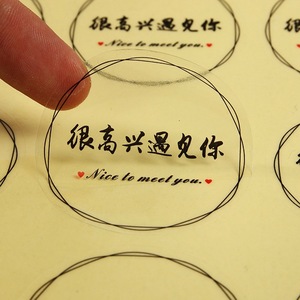 很高兴遇见你
Nice to meet you.
很高兴遇见你
Nice to meet you.